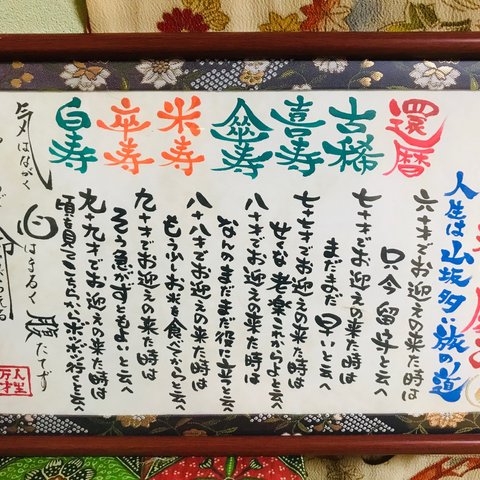 人生は山坂多い旅の道
還暦
六十才でお迎えの来た時は
只今留守と云へ
古稀
七十才でお迎えの来た時は
まだまだ早いと云へ
喜寿
七十七才でお迎えの来た時は
せくな老楽これからよと云へ
傘寿
八十才でお迎えの来た時は
なんのまだまだ役に立つと云へ
米寿
八十八才でお迎えの来た時は
もう少しお米を食べてからと云へ
卒寿
九十才でお迎えの来た時は
そう急がずともよいと云へ
白寿
九十九才でお迎えの来た時は
頃を見てこちらからボツボツ行くと云へ
気はながく
心はまるく
腹たてず